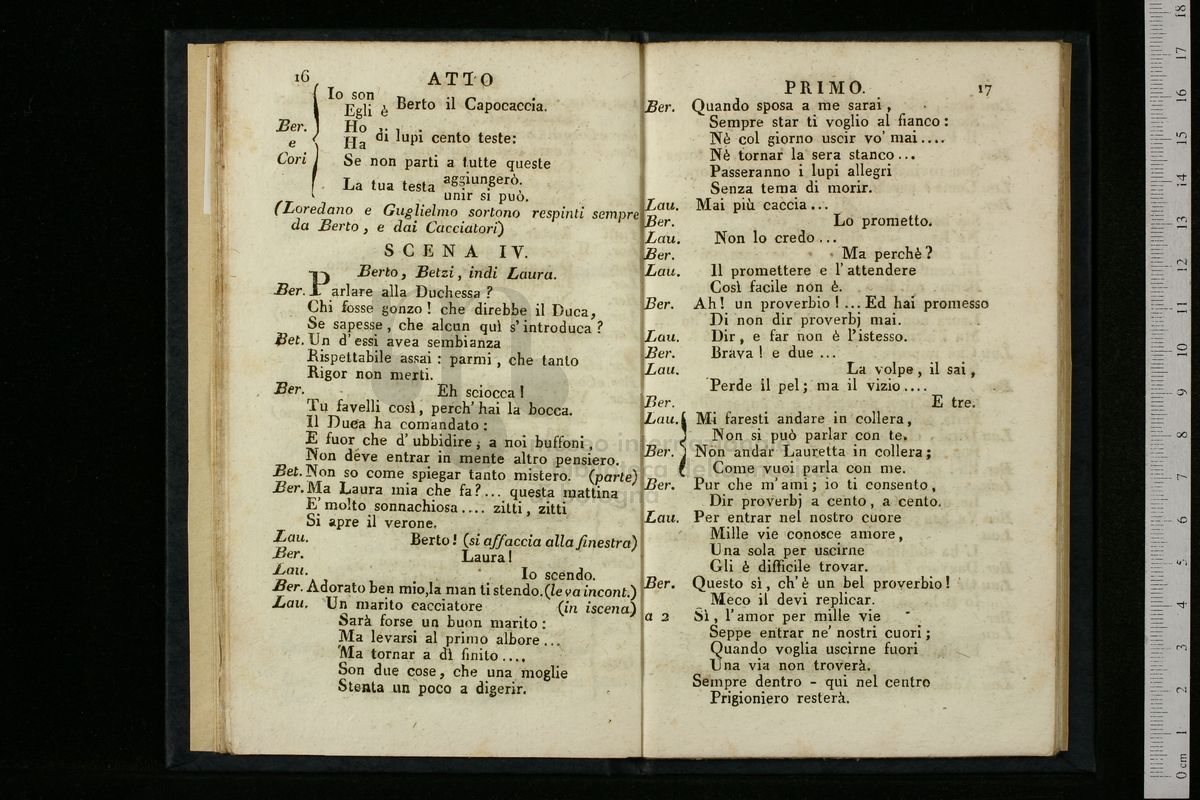 16
ATTO
Io son
Egli è Berto il Capocaccia.
Ber.
e
Cori
Ho
Ha di lupi cento teste:
Se non parti a tutte queste
La tua testa aggiungerò.
unir si può.
(Loredano e Guglielmo sortono respinti sempre
da Berto, e dai Cacciatori)
SCENA IV.
Berto, Betzi, indi Laura.
Ber. Parlare alla Duchessa?
Chi fosse gonzo! che direbbe il Duca,
Se sapesse, che alcun quì s'introduca?
Bet. Un d'essi avea sembianza
Rispettabile assai: parmi, che tanto
Rigor non merti.
Ber. Eh sciocca!
Tu favelli così, perch' hai la bocca.
Il Duca ha comandato:
E fuor che d'ubbidire, a noi buffoni,
Non deve entrar in mente altro pensiero.
Bet. Non so come spiegar tanto mistero. (parte)
Ber. Ma Laura mia che fa?... questa mattina
E' molto sonnachiosa.... zitti, zitti
Si apre il verone.
Lau. Berto! (si affaccia alla finestra)
Ber. Laura!
Lau. Io scendo.
Ber. Adorato ben mio, la man ti stendo. (le va incont.)
Lau. Un marito cacciatore (in iscena)
Sarà forse un buon marito:
Ma levarsi al primo albore...
Ma tornar a dì finito....
Son due cose, che una moglie
Stenta un poco a digerir.
PRIMO.
17
Ber. Quando sposa a me sarai,
Sempre star ti voglio al fianco:
Nè col giorno uscir vo' mai....
Nè tornar la sera stanco...
Passeranno i lupi allegri
Senza tema di morir.
Lau. Mai più caccia...
Ber. Lo prometto.
Lau. Non lo credo...
Ber. Ma perchè?
Lau. Il promettere e l'attendere
Così facile non è.
Ber. Ah! un proverbio!... Ed hai promesso
Di non dir proverbj mai.
Lau. Dir, e far non è l'istesso.
Ber. Brava! e due...
Lau. La volpe, il sai,
Perde il pel; ma il vizio....
Ber. E tre.
Lau. Mi faresti andare in collera,
Non si può parlar con te.
Ber. Non andar Lauretta in collera;
Come vuoi parla con me.
Ber. Pur che m'ami; io ti consento,
Dir proverbj a cento, a cento.
Lau. Per entrar nel nostro cuore
Mille vie conosce amore,
Una sola per uscirne
Gli è difficile trovar.
Ber. Questo sì, ch'è un bel proverbio!
Meco il devi replicar.
a 2 Sì, l'amor per mille vie
Seppe entrar ne' nostri cuori;
Quando voglia uscirne fuori
Una via non troverà.
Sempre dentro - qui nel centro
Prigioniero resterà.
0 cm 1 2 3 4 5 6 7 8 9 10 11 12 13 14 15 16 17 18